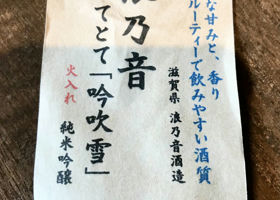 な甘みと、香り
ルーティーで飲みやすい酒質
滋賀県 浪乃音酒造
浪乃音
てとて「吟吹雪」
火入れ
純米吟醸